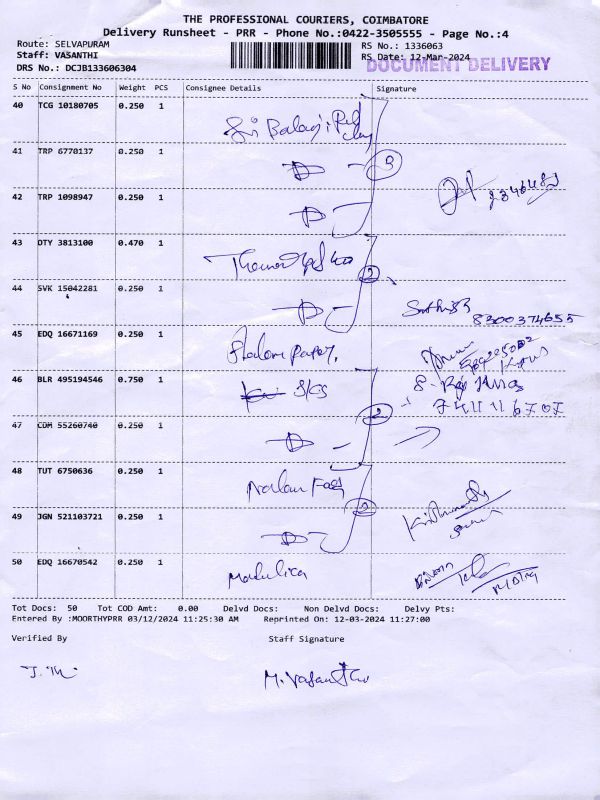 THE PROFESSIONAL COURIERS, COIMBATORE
Delivery Runsheet - PRR - Phone No.:0422-3505555 - Page No.:4
Route: SELVAPURAM RS No.: 1336063
Staff: VASANTHI RS Date: 12-Mar-2024
DRS No.: DCJB133606304 DOCUMENT DELIVERY
S No Consignment No Weight PCS Consignee Details Signature
40 TCG 10180705 0.250 1
Sri Balaji
41 TRP 6770137 0.250 1
D 3
42 TRP 1098947 0.250 1
D
43 DTY 3813100 0.470 1
2
44 SVK 15042281 0.250 1
D
8300374655
45 EDQ 16671169 0.250 1
46 BLR 495194546 0.750 1
SKS
2
47 CDM 55260740 0.250 1
D
48 TUT 6750636 0.250 1
2
49 JGN 521103721 0.250 1
D
50 EDQ 16670542 0.250 1
Tot Docs: 50 Tot COD Amt: 0.00 Delvd Docs: Non Delvd Docs: Delvy Pts:
Entered By :MOORTHYPRR 03/12/2024 11:25:30 AM Reprinted On: 12-03-2024 11:27:00
Verified By Staff Signature
M. Vasanthi